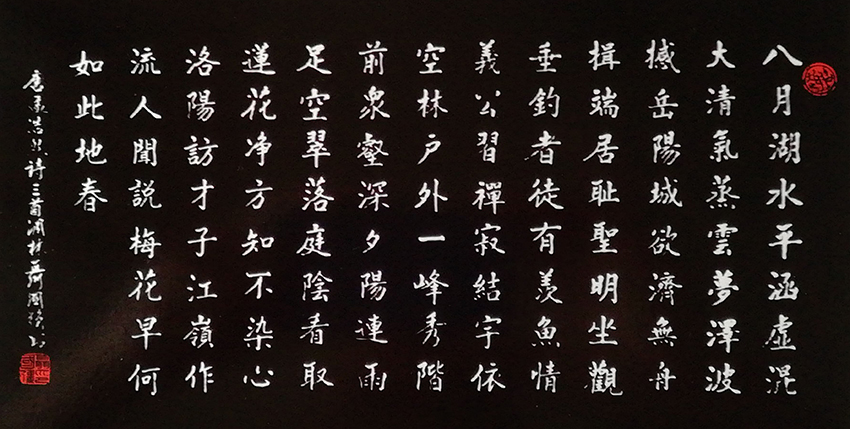 八月湖水平涵虛混
大清氣蒸雲夢澤波
撼岳陽城欲濟無舟
楫端居耻聖明坐觀
垂釣者徒有羨魚情
義公習禪寂結宇依
空林户外一峰秀階
前衆壑深夕陽連雨
足空翠落庭陰看取
蓮花净方知不染心
洛陽訪才子江嶺作
流人聞説梅花早何
如此地春
唐孟浩然詩三首